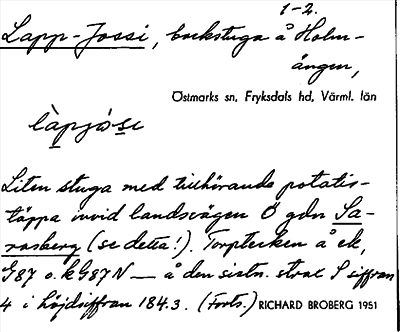 1-2.
Lapp-Jossi, backstuga å Holm-
ängen,
Östmarks sn, Fryksdals hd, Värml. län
làpjòse
Liten stuga med tillhörande potatis-
täppa invid landsvägen Ö gdn Sa-
rasberg (se detta!). Torptecken å ek,
G87 o. k G87 N — å den sistn. strax S siffran
4 i höjdsiffran 184.3. (Forts.) RICHARD BROBERG 1951